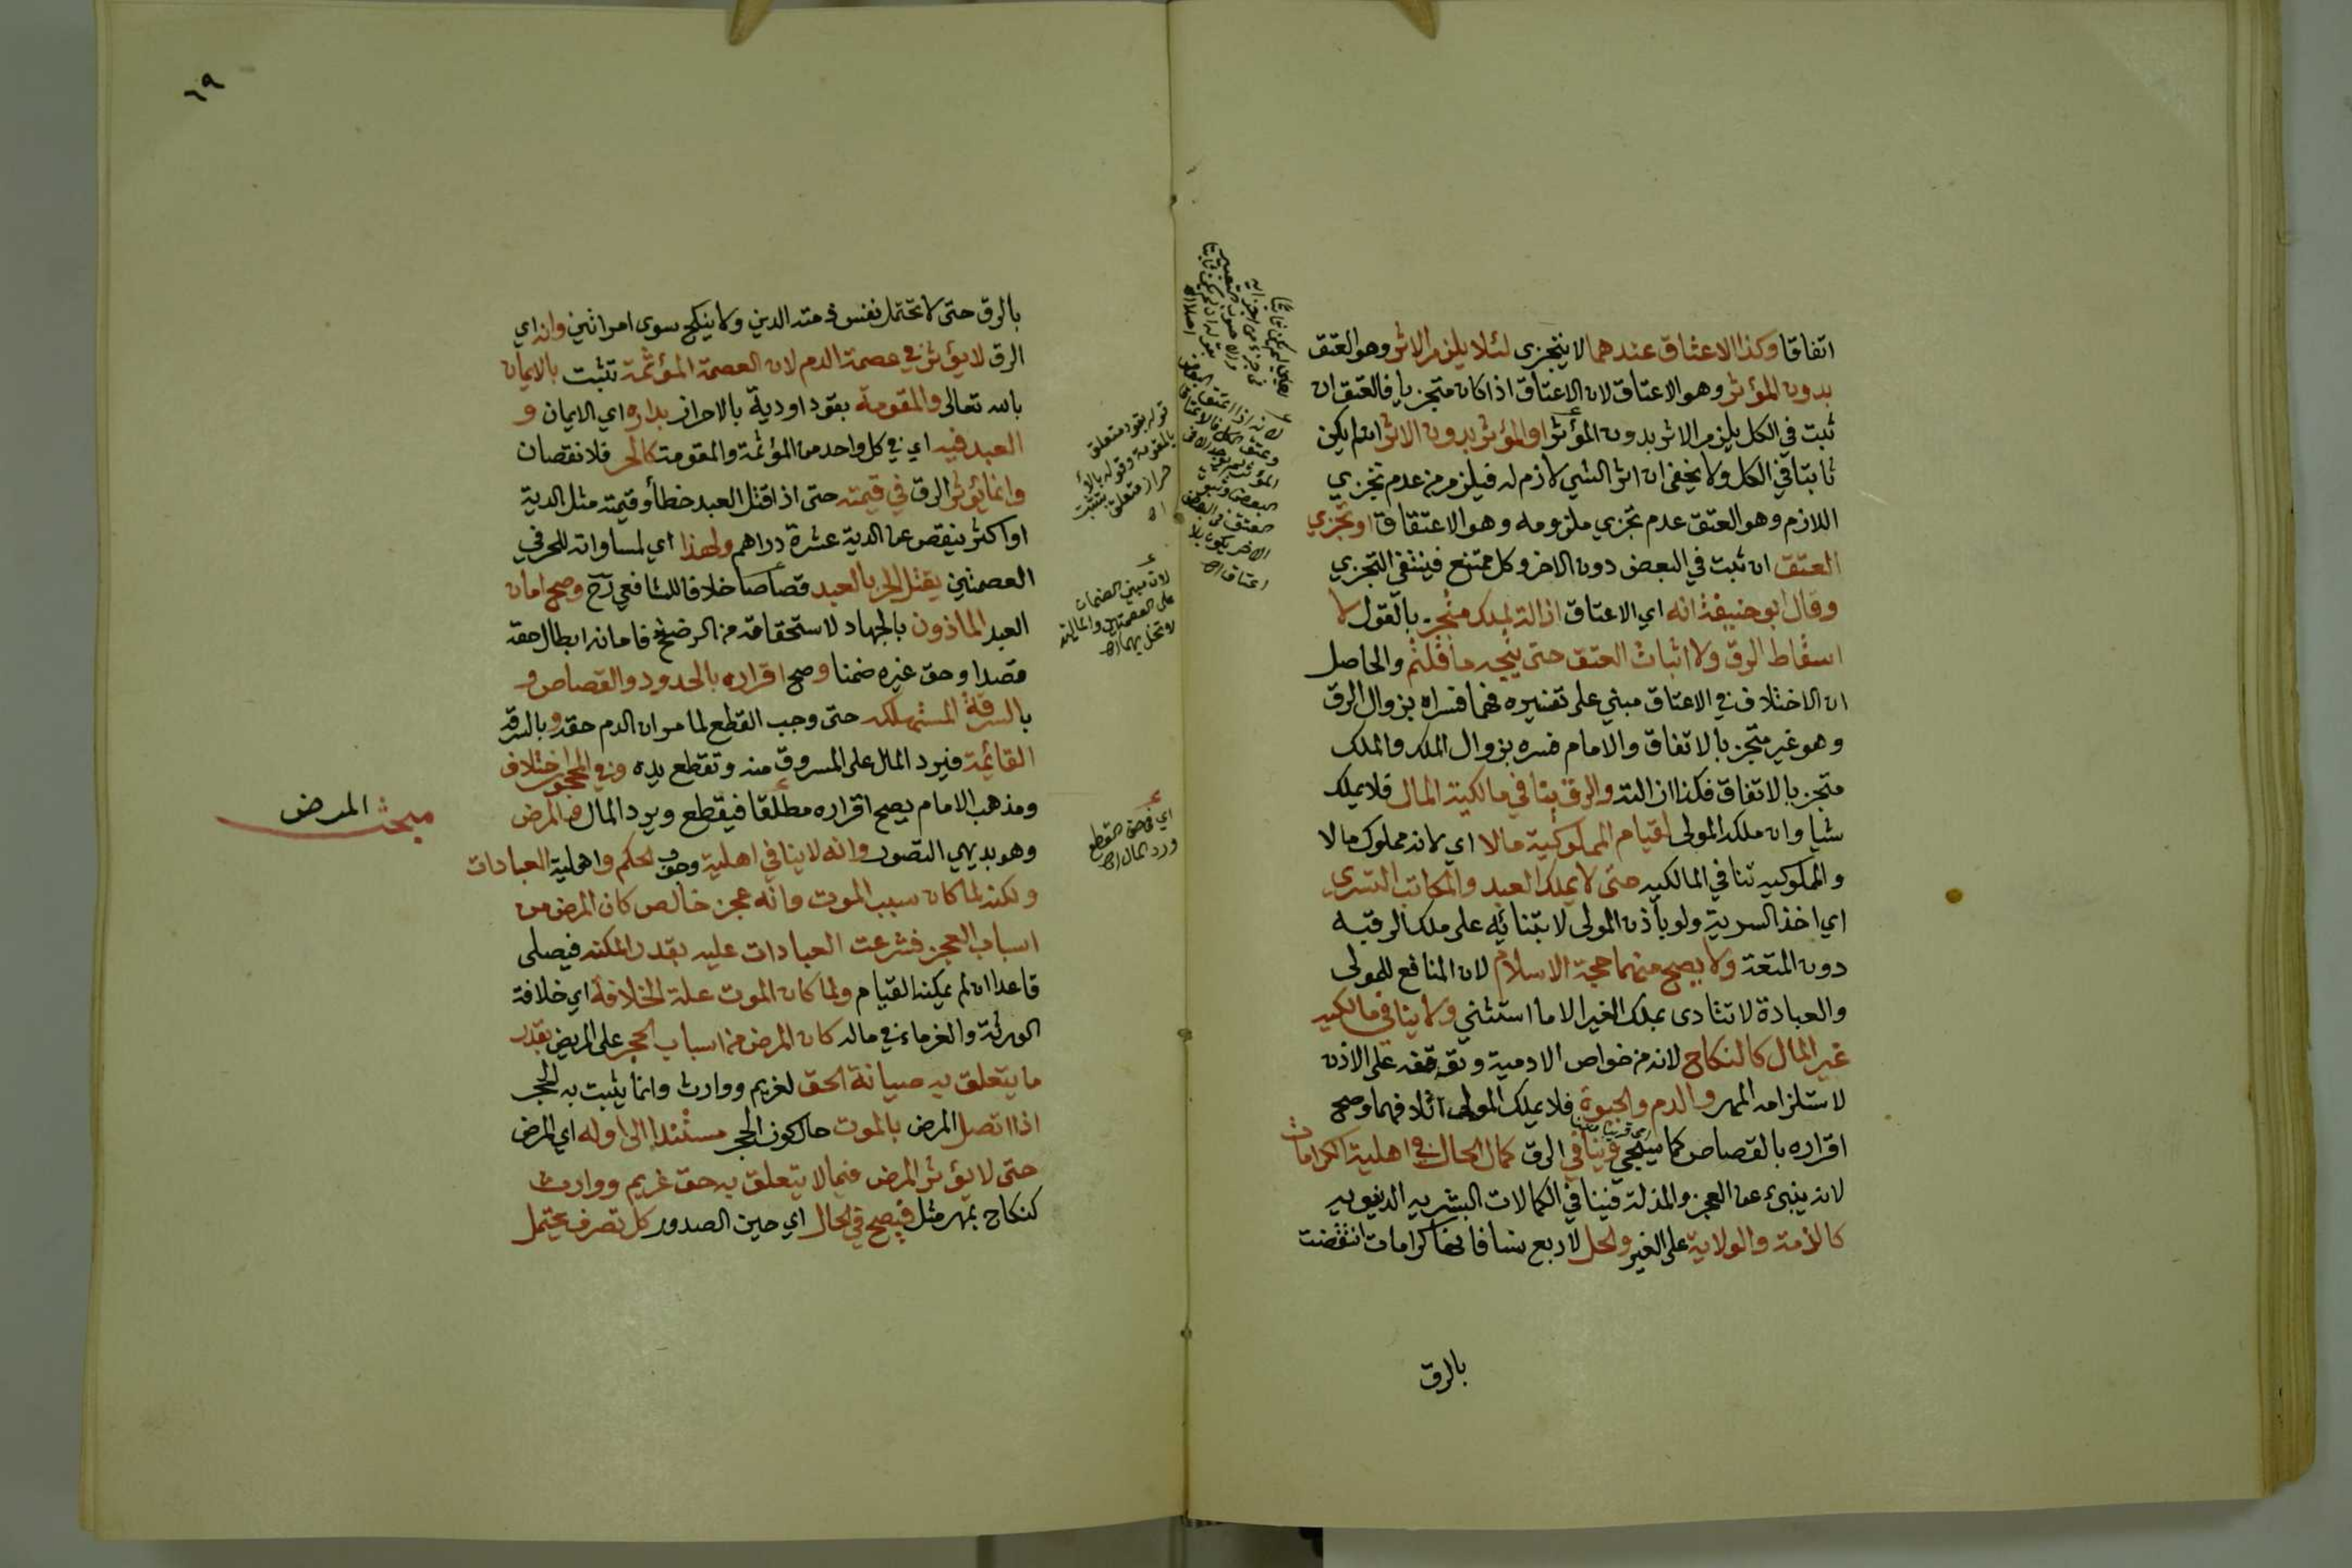 اتفاقا وكذا الاعتاق عندهما لا يتجزى لئلا يلزم الاثر وهو العتق
بدون المؤثر وهو الاعتاق لان الاعتاق اذا كان متجزيا فالعتق ان
ثبت في الكل يلزم الاثر بدون المؤثر او المؤثر بدون الاثر ان لم يكن
ثابتا في الكل ولا يخفى ان اثر الشي لازم له فيلزم من عدم تجزي
اللازم وهو العتق عدم تجزي ملزومه وهو الاعتقاق او تجزي
العتق ان ثبت في البعض دون الاخر وكل ممتنع فينتفي التجزي
وقال ابو حنيفة انه اي الاعتاق ازالة لملك متجز بالقول لا
اسقاط الرق ولا اثبات العتق حتى يتجه ما قلتم والحاصل
ان الاختلاف في الاعتاق مبني على تفسيره فهما فسراه بزوال الرق
وهو غير متجز بالاتفاق والامام فسره بزوال الملك والملك
متجز بالاتفاق فكذا ازالته والرق ينافي مالكية المال فلا يملك
شيا وان ملكه المولى لقيام المملوكية مالا اي لانه مملوك مالا
والمملوكيه تنافي المالكيه حتى لا يملك العبد والمكاتب التسري
اي اخذ السرية ولو بأذن المولى لابتنائه على ملك الرقبه
دون المتعة ولا يصح منهما حجة الاسلام لان المنافع للمولى
والعبادة لا تتادى بملك الغير الا ما استثني ولا ينافي مالكيه
غير المال كالنكاح لانه من خواص الادمية وتوقفه على الاذن
لاستلزامه المهر والدم والحيوة فلا يملك المولى اتلافهما وصح
اقراره بالقصاص كما سيجي وينافي الرق كمال الحال في اهلية الكرامات
لانه ينبىء عن العجز والمذلة فينافي الكمالات البشريه الدنيويه
كالذمة والولاية على الغير والحل لاربع نسا فانها كرامات انتقضت
بالرق
لانه اذا اعتق البعض
وعتق الكل فالاعتاق
٦٩
بالرق حتى لا تحتمل نفس ذمته الدين ولا ينكح سوى امراتين وانه اي
الرق لا يؤثر في عصمة الدم لان العصمة المؤثمة تثبت بالايمان
بالله تعالى والمقومة بقود او دية بالاحراز بداره اي الايمان و
العبد فيه اي في كل واحد من المؤثمة والمقومة كالحر فلا نقصان
وانما يؤثر الرق في قيمته حتى اذا قتل العبد خطأ وقيمته مثل الدية
او اكثر ينقص عن الدية عشرة دراهم ولهذا اي لمساواته للحر في
العصمتين يقتل الحر بالعبد قصاصا خلافا للشافعي رح وصح امان
العبد الماذون بالجهاد لاستحقاقه من الرضخ فامانه ابطال حقه
قصدا وحق غيره ضمنا وصح اقراره بالحدود والقصاص و
بالسرقة المستهلكه حتى وجب القطع لما مر ان الدم حقه وبالسرقة
القائمة فيرد المال على المسروق منه وتقطع يده وفي المحجور اختلاف
ومذهب الامام يصح اقراره مطلقا فيقطع ويرد المال والمرض
وهو بديهي التصور وانه لا ينافي اهلية وجوب الحكم واهلية العبادات
ولكنه لما كان سبب الموت وانه عجز خالص كان المرض من
اسباب العجز فشرعت العبادات عليه بقدر المكنه فيصلى
قاعدا ان لم يمكنه القيام ولما كان الموت علة الخلافة اي خلافة
الورثة والغرماء في ماله كان المرض من اسباب الحجر على المريض بقدر
ما يتعلق به صيانة الحق لغريم ووارث وانما يثبت به الحجر
اذا اتصل المرض بالموت حال كون الحجر مستندا الى اوله اي المرض
حتى لا يؤثر المرض فيما لا يتعلق به حق غريم ووارث
كنكاح بمهر مثل فيصح في الحال اي حين الصدور كل تصرف يحتمل
قوله بقود متعلق
بالمقومة وقوله بالأ
حراز متعلق بتثبت
اه
لان مبنى الضمان
على العصمتين والمالية
لا تخل بهما اه
اي في حق القطع
ورد المال اه
مبحث المرض